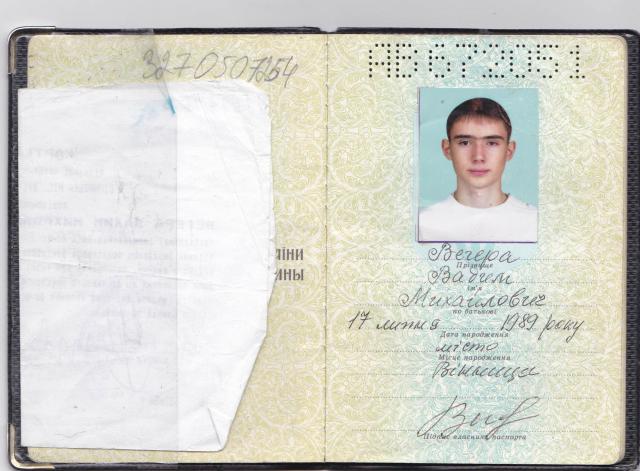 3270507254
їни
ины
АВ672051
Вечера
Прізвище
Вадим
Ім'я
Михайлович
по батькові
17 липня 1989 року
Дата народження
місто
Місце народження
Вінниця
Підпис власника паспорта